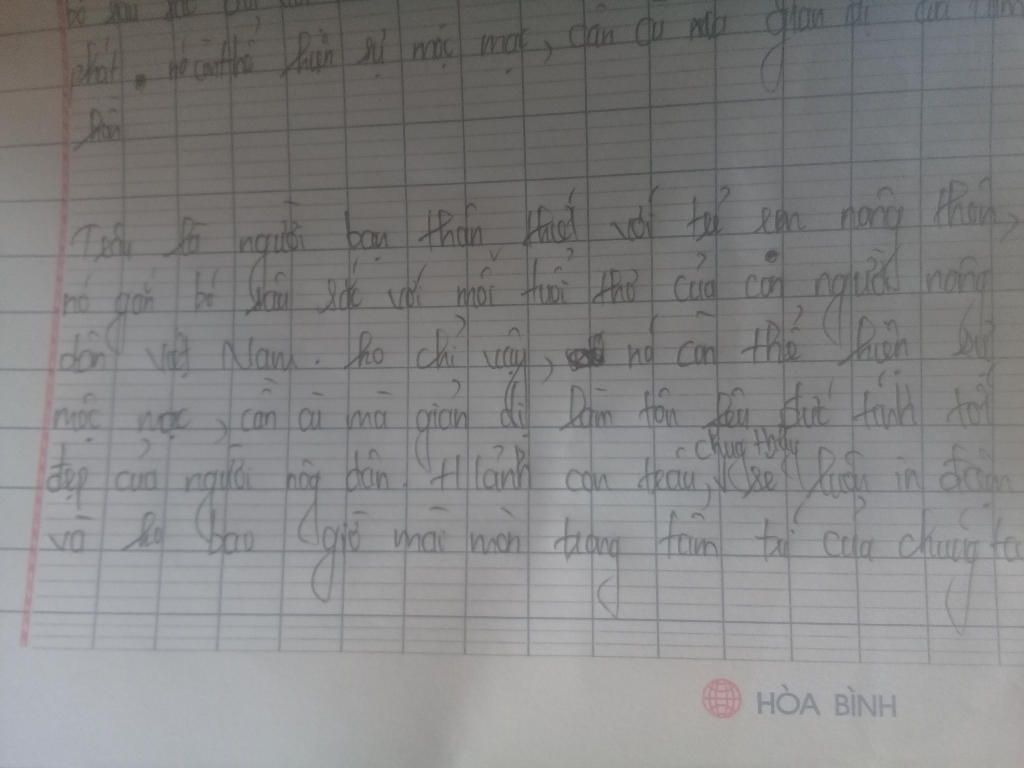 bó sâu sắc
phát. nó còn thể hiện sự mộc mạc, dân dã mà giản dị của
hồn
Trâu là người bạn thân thiết với trẻ em nông thôn,
nó gắn bó sâu sắc với mỗi tuổi thơ của con người nông
dân việt Nam. ko chỉ vậy, nó còn thể hiện sự
mộc mạc, cần cù mà giản dị làm tôn lên đức tính tốt
đẹp của người nôg dân. H\ảnh con trâu, chug thủy sẽ luôn in đậm
và ko bao giờ mài mòn trong tâm trí của chúng ta
HÒA BÌNH